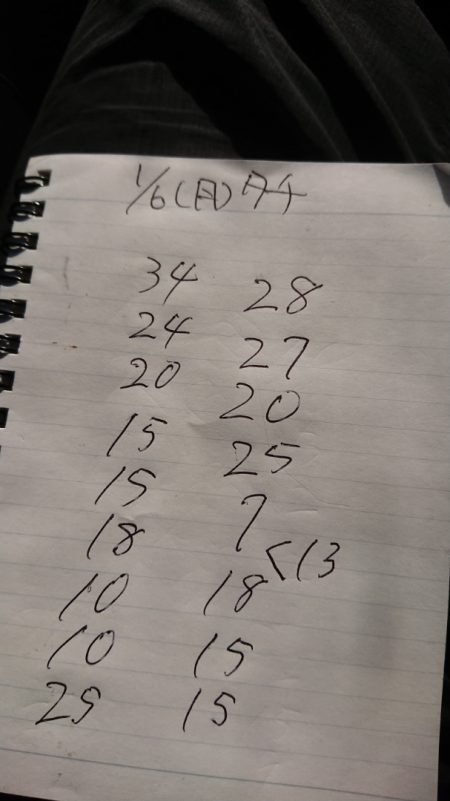 1/6(月)タチ
34 28
24 27
20 20
15 25
15 7
18 <13
10 18
10 15
25 15